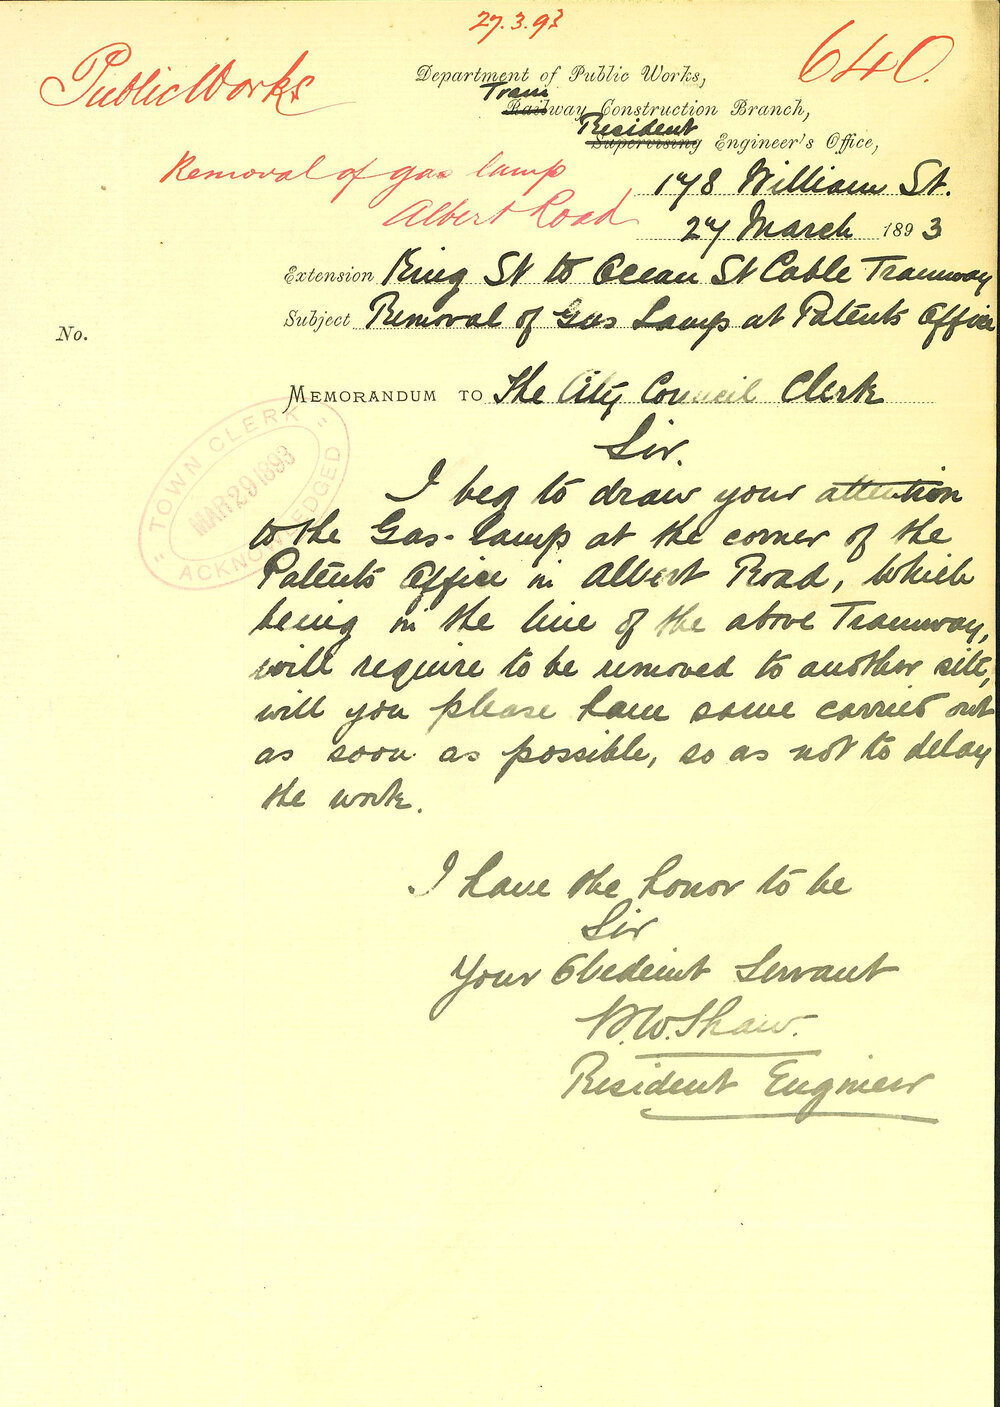 27.3.93
Public Works
640.
Department of Public Works,
Tram
Railway Construction Branch,
Resident
Supervising Engineer's Office,
Removal of gas lamp
Albert Road
178 William St.
27 March 1893
Extension King St to Ocean St Cable Tramway
Subject Removal of Gas Lamp at Patents Office
No.
MEMORANDUM TO The City Council Clerk
"TOWN CLERK"
MAR 29 1893
ACKNOWLEDGED
Sir.
I beg to draw your attention
to the Gas-lamp at the corner of the
Patents Office in Albert Road, which
being in the line of the above Tramway,
will require to be removed to another site,
will you please have same carried out
as soon as possible, so as not to delay
the work.
I have the honor to be
Sir
Your Obedient Servant
W. Shaw.
Resident Engineer